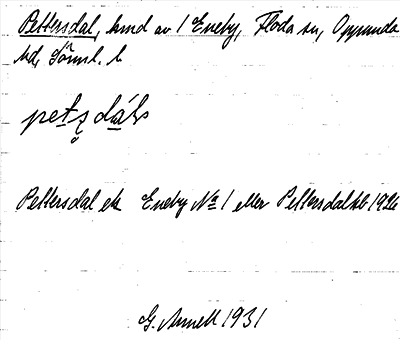 Pettersdal, hmd av 1 Eneby, Floda sn, Oppunda
hd, Sörml. l.
Pettersdal ek Eneby № 1 eller Pettersdal kb 1926
G. Annell 1931